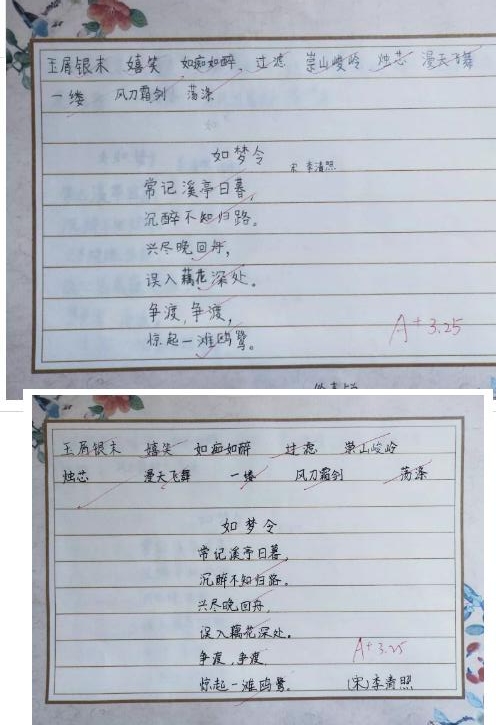 玉屑银末 嬉笑 如痴如醉、过滤 崇山峻岭 烛芯 漫天飞舞
一缕 风刀霜剑 荡涤
如梦令
宋 李清照
常记溪亭日暮,
沉醉不知归路。
兴尽晚回舟,
误入藕花深处。
争渡,争渡,
惊起一滩鸥鹭。
A+ 3.25
玉屑银末 嬉笑 如痴如醉 过滤 崇山峻岭
烛芯 漫天飞舞 一缕 风刀霜剑 荡涤
如梦令
常记溪亭日暮,
沉醉不知归路。
兴尽晚回舟,
误入藕花深处。
争渡,争渡,
A+ 3.25
惊起一滩鸥鹭。 (宋)李清照